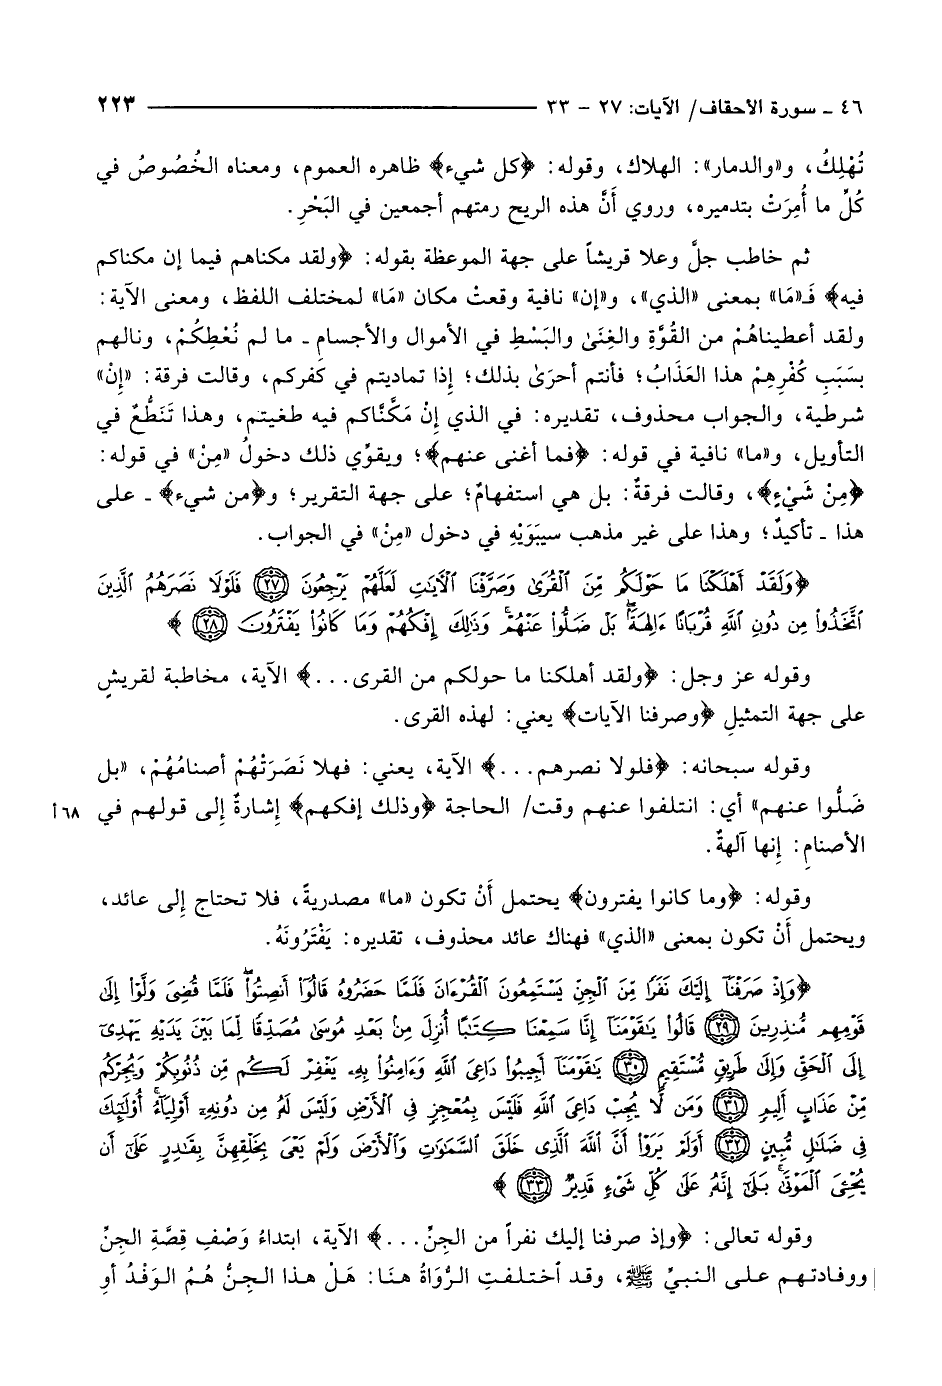 ٤٦ ـ سورة الأحقاف/ الآيات: ٢٧ - ٣٣ ٢٢٣
تُهْلِكُ، و«والدمار»: الهلاك، وقوله: ﴿كل شيء﴾ ظاهره العموم، ومعناه الخُصُوصُ في
كُلِّ ما أُمِرَتْ بتدميره، وروي أَنَّ هذه الريح رمتهم أجمعين في البَحْرِ.
ثم خاطب جلَّ وعلا قريشاً على جهة الموعظة بقوله: ﴿ولقد مكناهم فيما إن مكناكم
فيه﴾ فَـ«مَا» بمعنى «الذي»، و«إن» نافية وقعتْ مكان «مَا» لمختلف اللفظ، ومعنى الآية:
ولقد أعطيناهُمْ من القُوَّةِ والغِنَىٰ والبَسْطِ في الأموال والأجسامِ ـ ما لم نُعْطِكُمْ، ونالهم
بسَبَبِ كُفْرِهِمْ هذا العَذَابُ؛ فأنتم أحرَىٰ بذلك؛ إِذا تماديتم في كفركم، وقالت فرقة: «إِنْ»
شرطية، والجواب محذوف، تقديره: في الذي إِنْ مَكَّنَّاكم فيه طغيتم، وهذا تَنَطُّعٌ في
التأويل، و«ما» نافية في قوله: ﴿فما أغنى عنهم﴾؛ ويقوِّي ذلك دخولُ «مِنْ» في قوله:
﴿مِنْ شَيْءٍ﴾، وقالت فرقةٌ: بل هي استفهامٌ؛ على جهة التقرير؛ و﴿من شيء﴾ ـ على
هذا ـ تأكيدٌ؛ وهذا على غير مذهب سيبَوَيْهِ في دخول «مِنْ» في الجواب.
﴿وَلَقَدْ أَهْلَكْنَا مَا حَوْلَكُم مِّنَ الْقُرَىٰ وَصَرَّفْنَا الْآيَاتِ لَعَلَّهُمْ يَرْجِعُونَ ٢٧ فَلَوْلَا نَصَرَهُمُ الَّذِينَ
اتَّخَذُوا مِن دُونِ اللَّهِ قُرْبَانًا ءَالِهَةً بَلْ ضَلُّوا عَنْهُمْ وَذَٰلِكَ إِفْكُهُمْ وَمَا كَانُوا يَفْتَرُونَ ٢٨﴾
وقوله عز وجل: ﴿ولقد أهلكنا ما حولكم من القرى...﴾ الآية، مخاطبة لقريشٍ
على جهة التمثيلِ ﴿وصرفنا الآيات﴾ يعني: لهذه القرى.
وقوله سبحانه: ﴿فلولا نصرهم...﴾ الآية، يعني: فهلا نَصَرَتْهُمْ أصنامُهُمْ، «بل
ضَلُّوا عنهم» أي: انتلفوا عنهم وقت/ الحاجة ﴿وذلك إفكهم﴾ إِشارةٌ إِلى قولهم في ٦٨ أ
الأصنامِ: إِنها آلهةٌ.
وقوله: ﴿وما كانوا يفترون﴾ يحتمل أَنْ تكون «ما» مصدريةً، فلا تحتاج إِلى عائد،
ويحتمل أَنْ تكون بمعنى «الذي» فهناك عائد محذوف، تقديره: يَفْتَرُونَهُ.
﴿وَإِذْ صَرَفْنَا إِلَيْكَ نَفَرًا مِّنَ الْجِنِّ يَسْتَمِعُونَ الْقُرْءَانَ فَلَمَّا حَضَرُوهُ قَالُوا أَنصِتُوا فَلَمَّا قُضِيَ وَلَّوْا إِلَىٰ
قَوْمِهِم مُّنذِرِينَ ٢٩ قَالُوا يَا قَوْمَنَا إِنَّا سَمِعْنَا كِتَابًا أُنزِلَ مِنْ بَعْدِ مُوسَىٰ مُصَدِّقًا لِّمَا بَيْنَ يَدَيْهِ يَهْدِي
إِلَى الْحَقِّ وَإِلَىٰ طَرِيقٍ مُّسْتَقِيمٍ ٣٠ يَا قَوْمَنَا أَجِيبُوا دَاعِيَ اللَّهِ وَءَامِنُوا بِهِ يَغْفِرْ لَكُم مِّن ذُنُوبِكُمْ وَيُجِرْكُم
مِّنْ عَذَابٍ أَلِيمٍ ٣١ وَمَن لَّا يُجِبْ دَاعِيَ اللَّهِ فَلَيْسَ بِمُعْجِزٍ فِي الْأَرْضِ وَلَيْسَ لَهُ مِن دُونِهِ أَوْلِيَاءُ أُولَٰئِكَ
فِي ضَلَالٍ مُّبِينٍ ٣٢ أَوَلَمْ يَرَوْا أَنَّ اللَّهَ الَّذِي خَلَقَ السَّمَاوَاتِ وَالْأَرْضَ وَلَمْ يَعْيَ بِخَلْقِهِنَّ بِقَادِرٍ عَلَىٰ أَن
يُحْيِيَ الْمَوْتَىٰ بَلَىٰ إِنَّهُ عَلَىٰ كُلِّ شَيْءٍ قَدِيرٌ ٣٣﴾
وقوله تعالى: ﴿وإذ صرفنا إليك نفراً من الجنِّ...﴾ الآية، ابتداءُ وَصْفِ قِصَّةِ الجِنِّ
ووفادتهم على النبيِّ ﷺ، وقد اختلفتِ الرُّوَاةُ هنا: هَلْ هذا الجِنُّ هُمُ الوَفْدُ أو